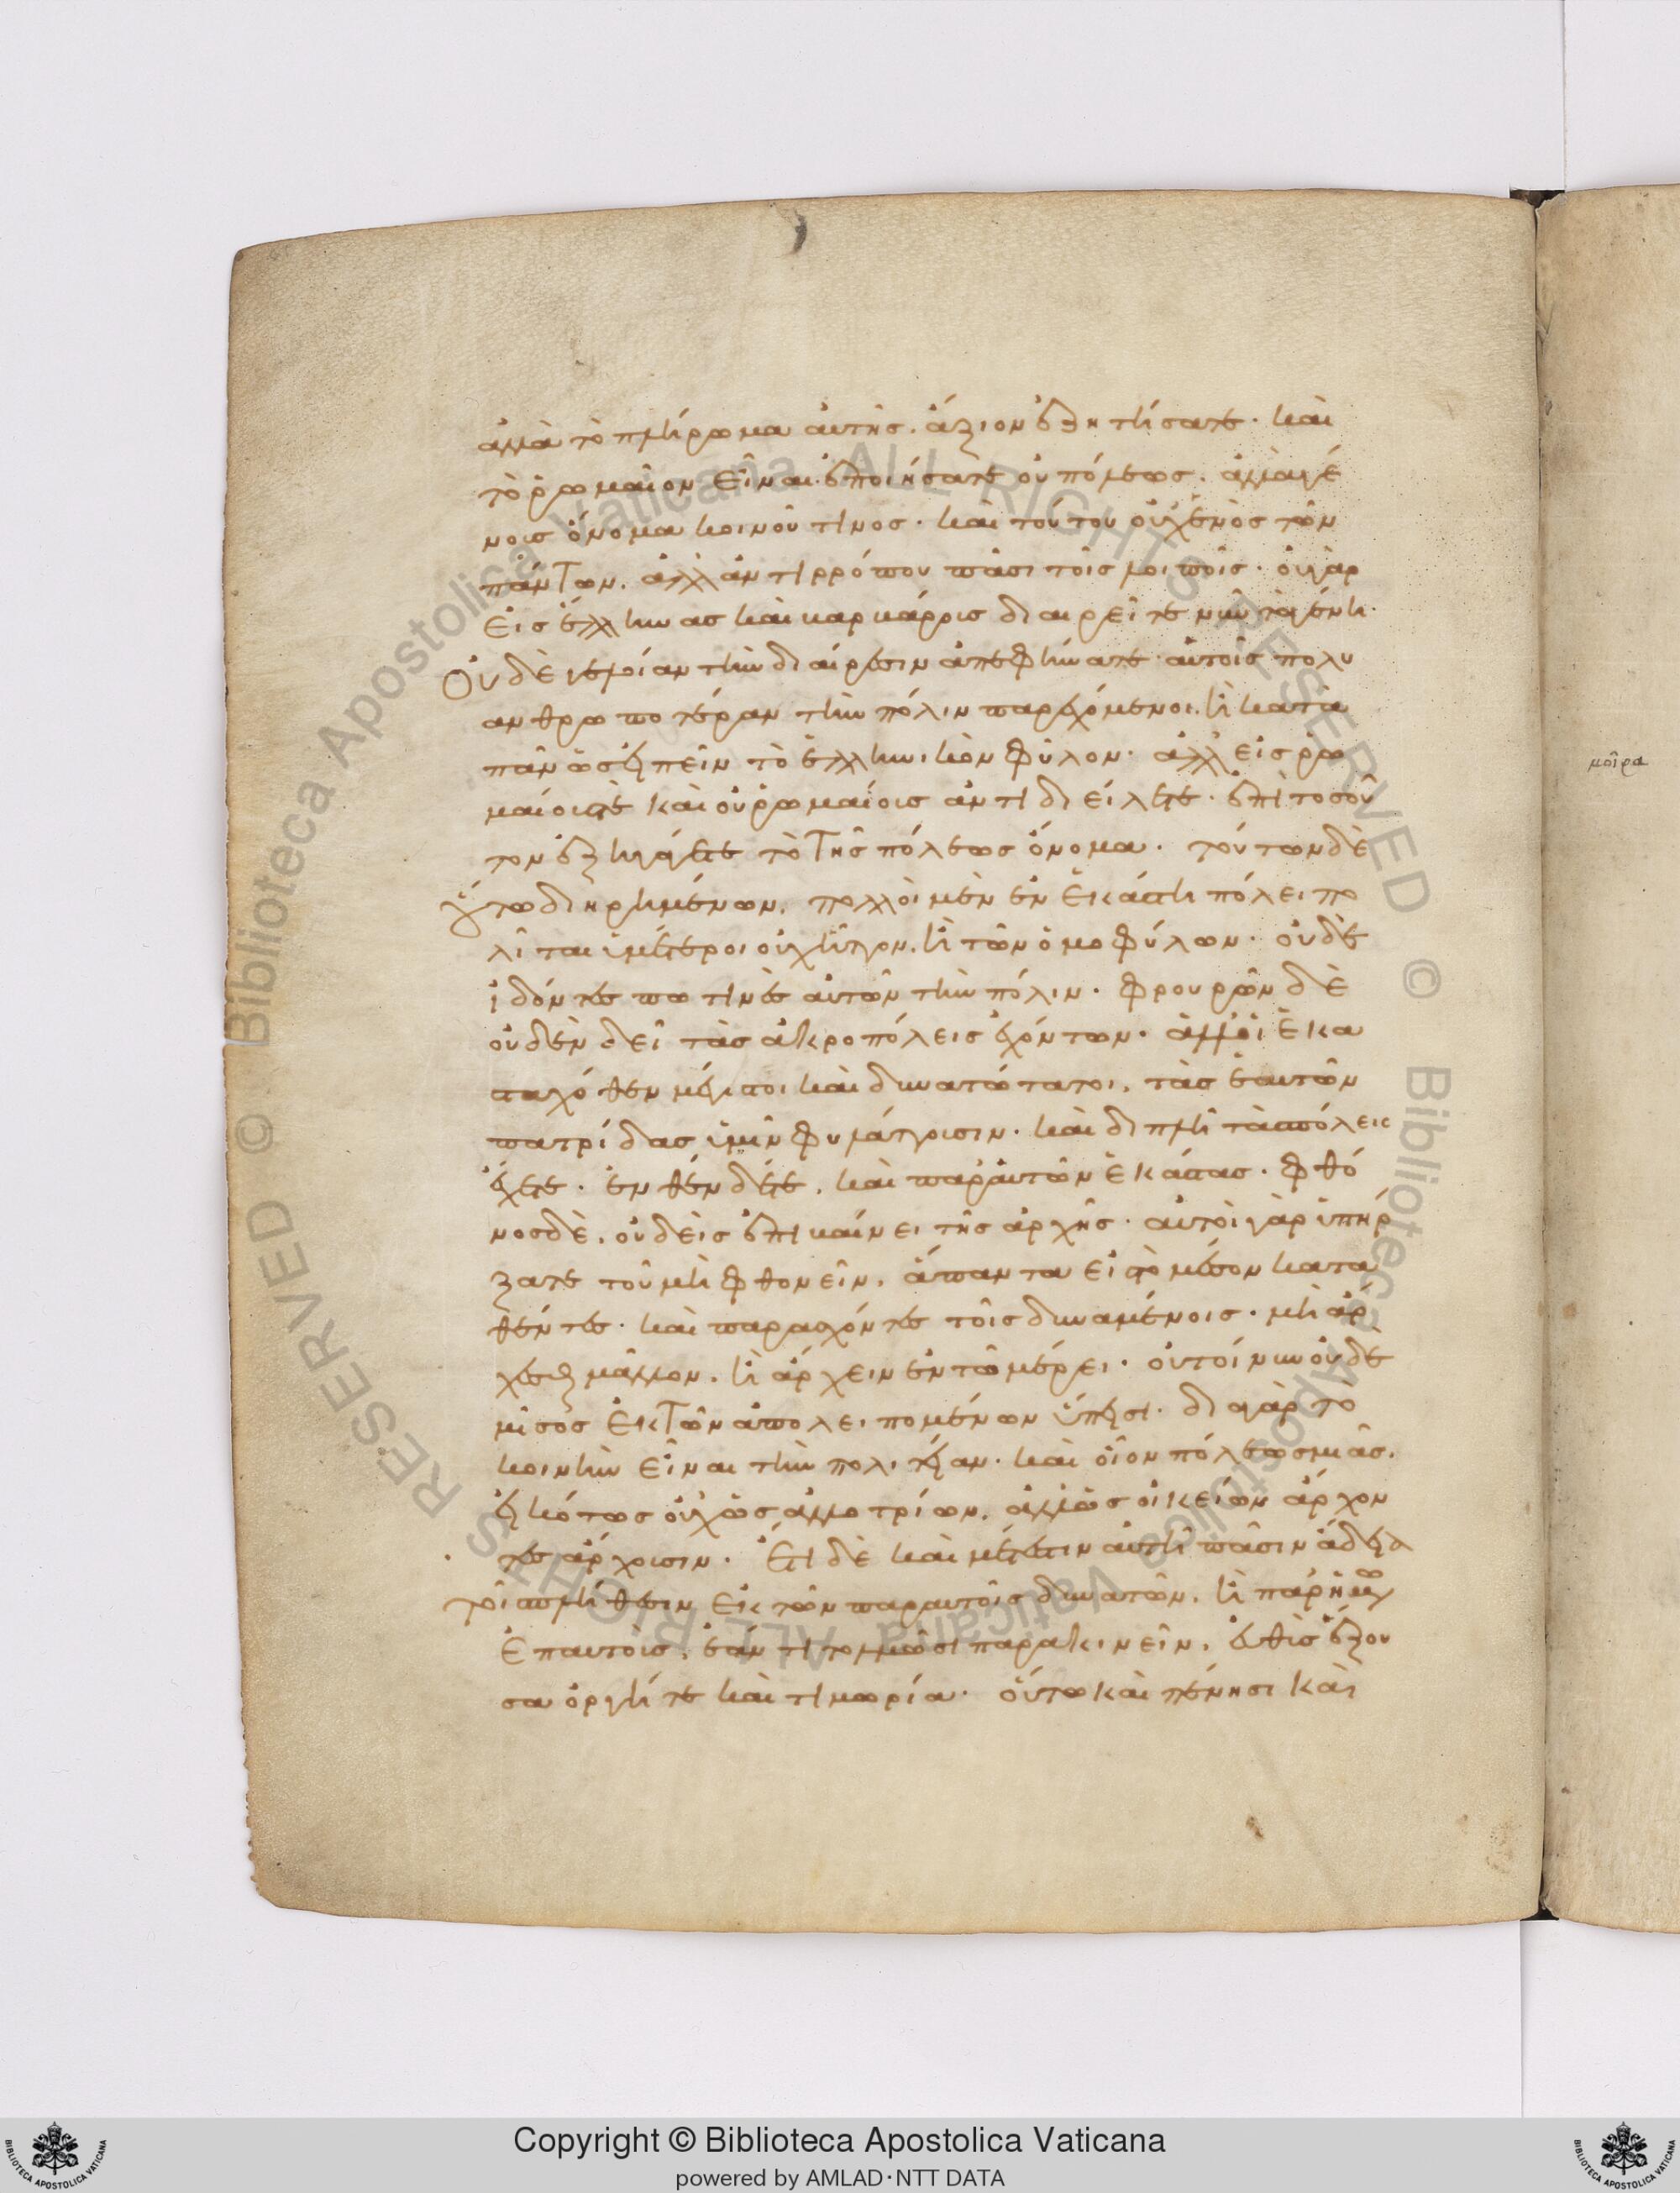 ἀλλὰ τὸ πλήρωμα αὐτῆς. ἄξιον ἐξητήσατε· καὶ
τὸ ῥωμαῖον εἶναι ἐποιήσατε οὐ πόλεως. ἀλλὰ γέ
νους ὄνομα κοινοῦ τινος· καὶ τούτου οὐχ ἑνὸς τῶν
πάντων. ἀλλ' ἀντιρρόπου πᾶσι τοῖς λοιποῖς· οὐ γὰρ
εἰς ἕλληνας καὶ βαρβάρους διαιρεῖτε νῦν τὰ γένη·
Οὐδὲ γελοίαν τὴν διαίρεσιν ἀπεφήνατε αὐτοῖς πολυ
ανθρωποτέραν τὴν πόλιν παρεχόμενοι. ἢ κατὰ
πᾶν ὡς εἰπεῖν τὸ ἑλληνικὸν φῦλον· ἀλλ' εἰς ῥω
μαίους τὲ καὶ οὐ ῥωμαίους ἀντιδιείλετε· ἐπὶ τοσοῦ
τον ἐξηγάγετε τὸ τῆς πόλεως ὄνομα· τούτων δὲ
οὕτω διῃρημένων. πολλοὶ μὲν ἐν ἑκάστη πόλει πο
λῖται ὑμέτεροι οὐχ ἧττον. ἢ τῶν ὁμοφύλων· οὐδὲ
ἰδόντες πω τινὲς αὐτῶν τὴν πόλιν· φρουρῶν δὲ
οὐδὲν δεῖ τὰς ἀκροπόλεις ἐχόντων· ἀλλ' οἱ ἑκα
σταχόθεν μέγιστοι καὶ δυνατώτατοι. τὰς ἑαυτῶν
πατρίδας ὑμῖν φυλάττουσιν· καὶ διπλῆ τὰς πόλεις
ἔχετε· ἐνθένδέτε. καὶ παρ' αὐτῶν ἑκάστας· φθό
νος δὲ. οὐδεὶς ἐπιβαίνει τῆς ἀρχῆς· αὐτοὶ γὰρ ὑπήρ
ξατε τοῦ μὴ φθονεῖν. ἅπαντα εἰς τὸ μέσον κατα
θέντες· καὶ παρασχόντες τοῖς δυναμένοις· μὴ ἄρ
χεσθαι μᾶλλον. ἢ ἄρχειν ἐν τῶ μέρει· οὐ τοίνυν οὐδὲ
μῖσος ἐκ τῶν ἀπολειπομένων ὕπεισι· διὰ γὰρ τὸ
κοινὴν εἶναι τὴν πολιτείαν· καὶ οἷον πόλεως μιᾶς.
εἰκότως οὐχ ὡς ἀλλοτρίων. ἀλλ' ὡς οἰκείων ἄρχον
τες ἄρχουσιν· Ἔτι δὲ καὶ μέτεστιν αὐτῆ πᾶσιν ἄδεια
τοῖς πλήθεσιν ἐκ τῶν παρ' αὐτοῖς δυνατῶν. ἡ παρ' ὑμῶν
ἐπ' αὐτοὺς. ἐάν τι τολμῶσι παρακινεῖν. εὐθὺς ἥξου
σα ὀργή τε καὶ τιμωρία· οὕτω καὶ πένησι καὶ
μοῖρα
Copyright © Biblioteca Apostolica Vaticana
powered by AMLAD·NTT DATA